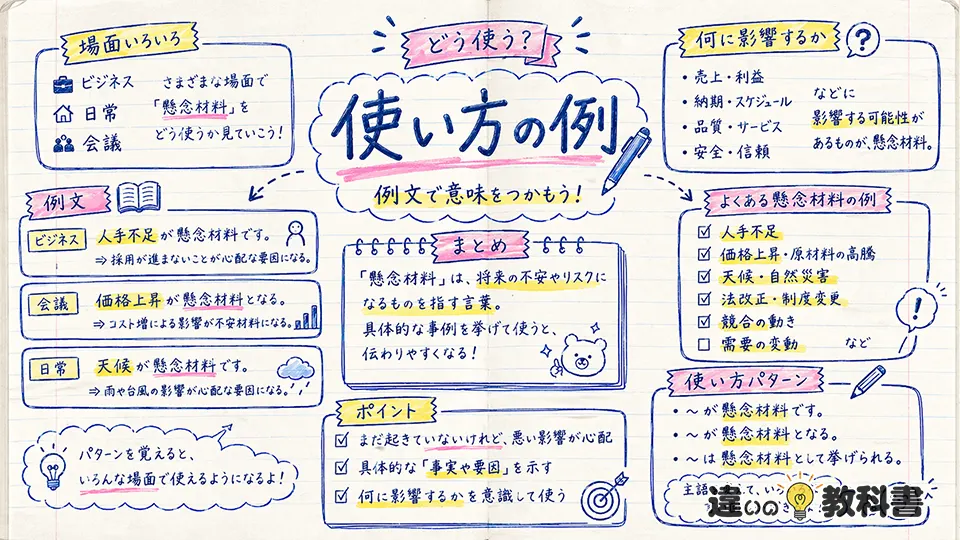 どう使う?
使い方の例
例文で意味をつかもう!
場面いろいろ
ビジネス
日常
会議
さまざまな場面で
「懸念材料」を
どう使うか見ていこう!
何に影響するか
?
・売上・利益
・納期・スケジュール
・品質・サービス
・安全・信頼
などに
影響する可能性が
あるものが、懸念材料。
例文
ビジネス
人手不足が懸念材料です。
⇒ 採用が進まないことが心配な要因になる。
会議
価格上昇が懸念材料となる。
⇒ コスト増による影響が不安材料になる。
日常
天候が懸念材料です。
⇒ 雨や台風の影響が心配な要因になる。
パターンを覚えると、
いろんな場面で使えるようになるよ!
まとめ
「懸念材料」は、将来の不安やリスクに
なるものを指す言葉。
具体的な事例を挙げて使うと、
伝わりやすくなる!
ポイント
まだ起きていないけれど、悪い影響が心配
具体的な「事実や要因」を示す
何に影響するかを意識して使う
よくある懸念材料の例
人手不足
価格上昇・原材料の高騰
天候・自然災害
法改正・制度変更
競合の動き
需要の変動 など
!
使い方パターン
・〜が懸念材料です。
・〜が懸念材料となる。
・〜は懸念材料として挙げられる。
主語 して、いろ
違いの教科書